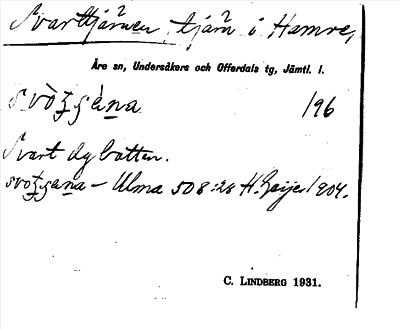 Svarttjärnen, tjärn i Hamre,
Åre sn, Undersåkers och Offerdals tg, Jämtl. l.
1/96
Svart dybotten.
Ulma 508:28 H. Geijer 1904.
C. LINDBERG 1931.